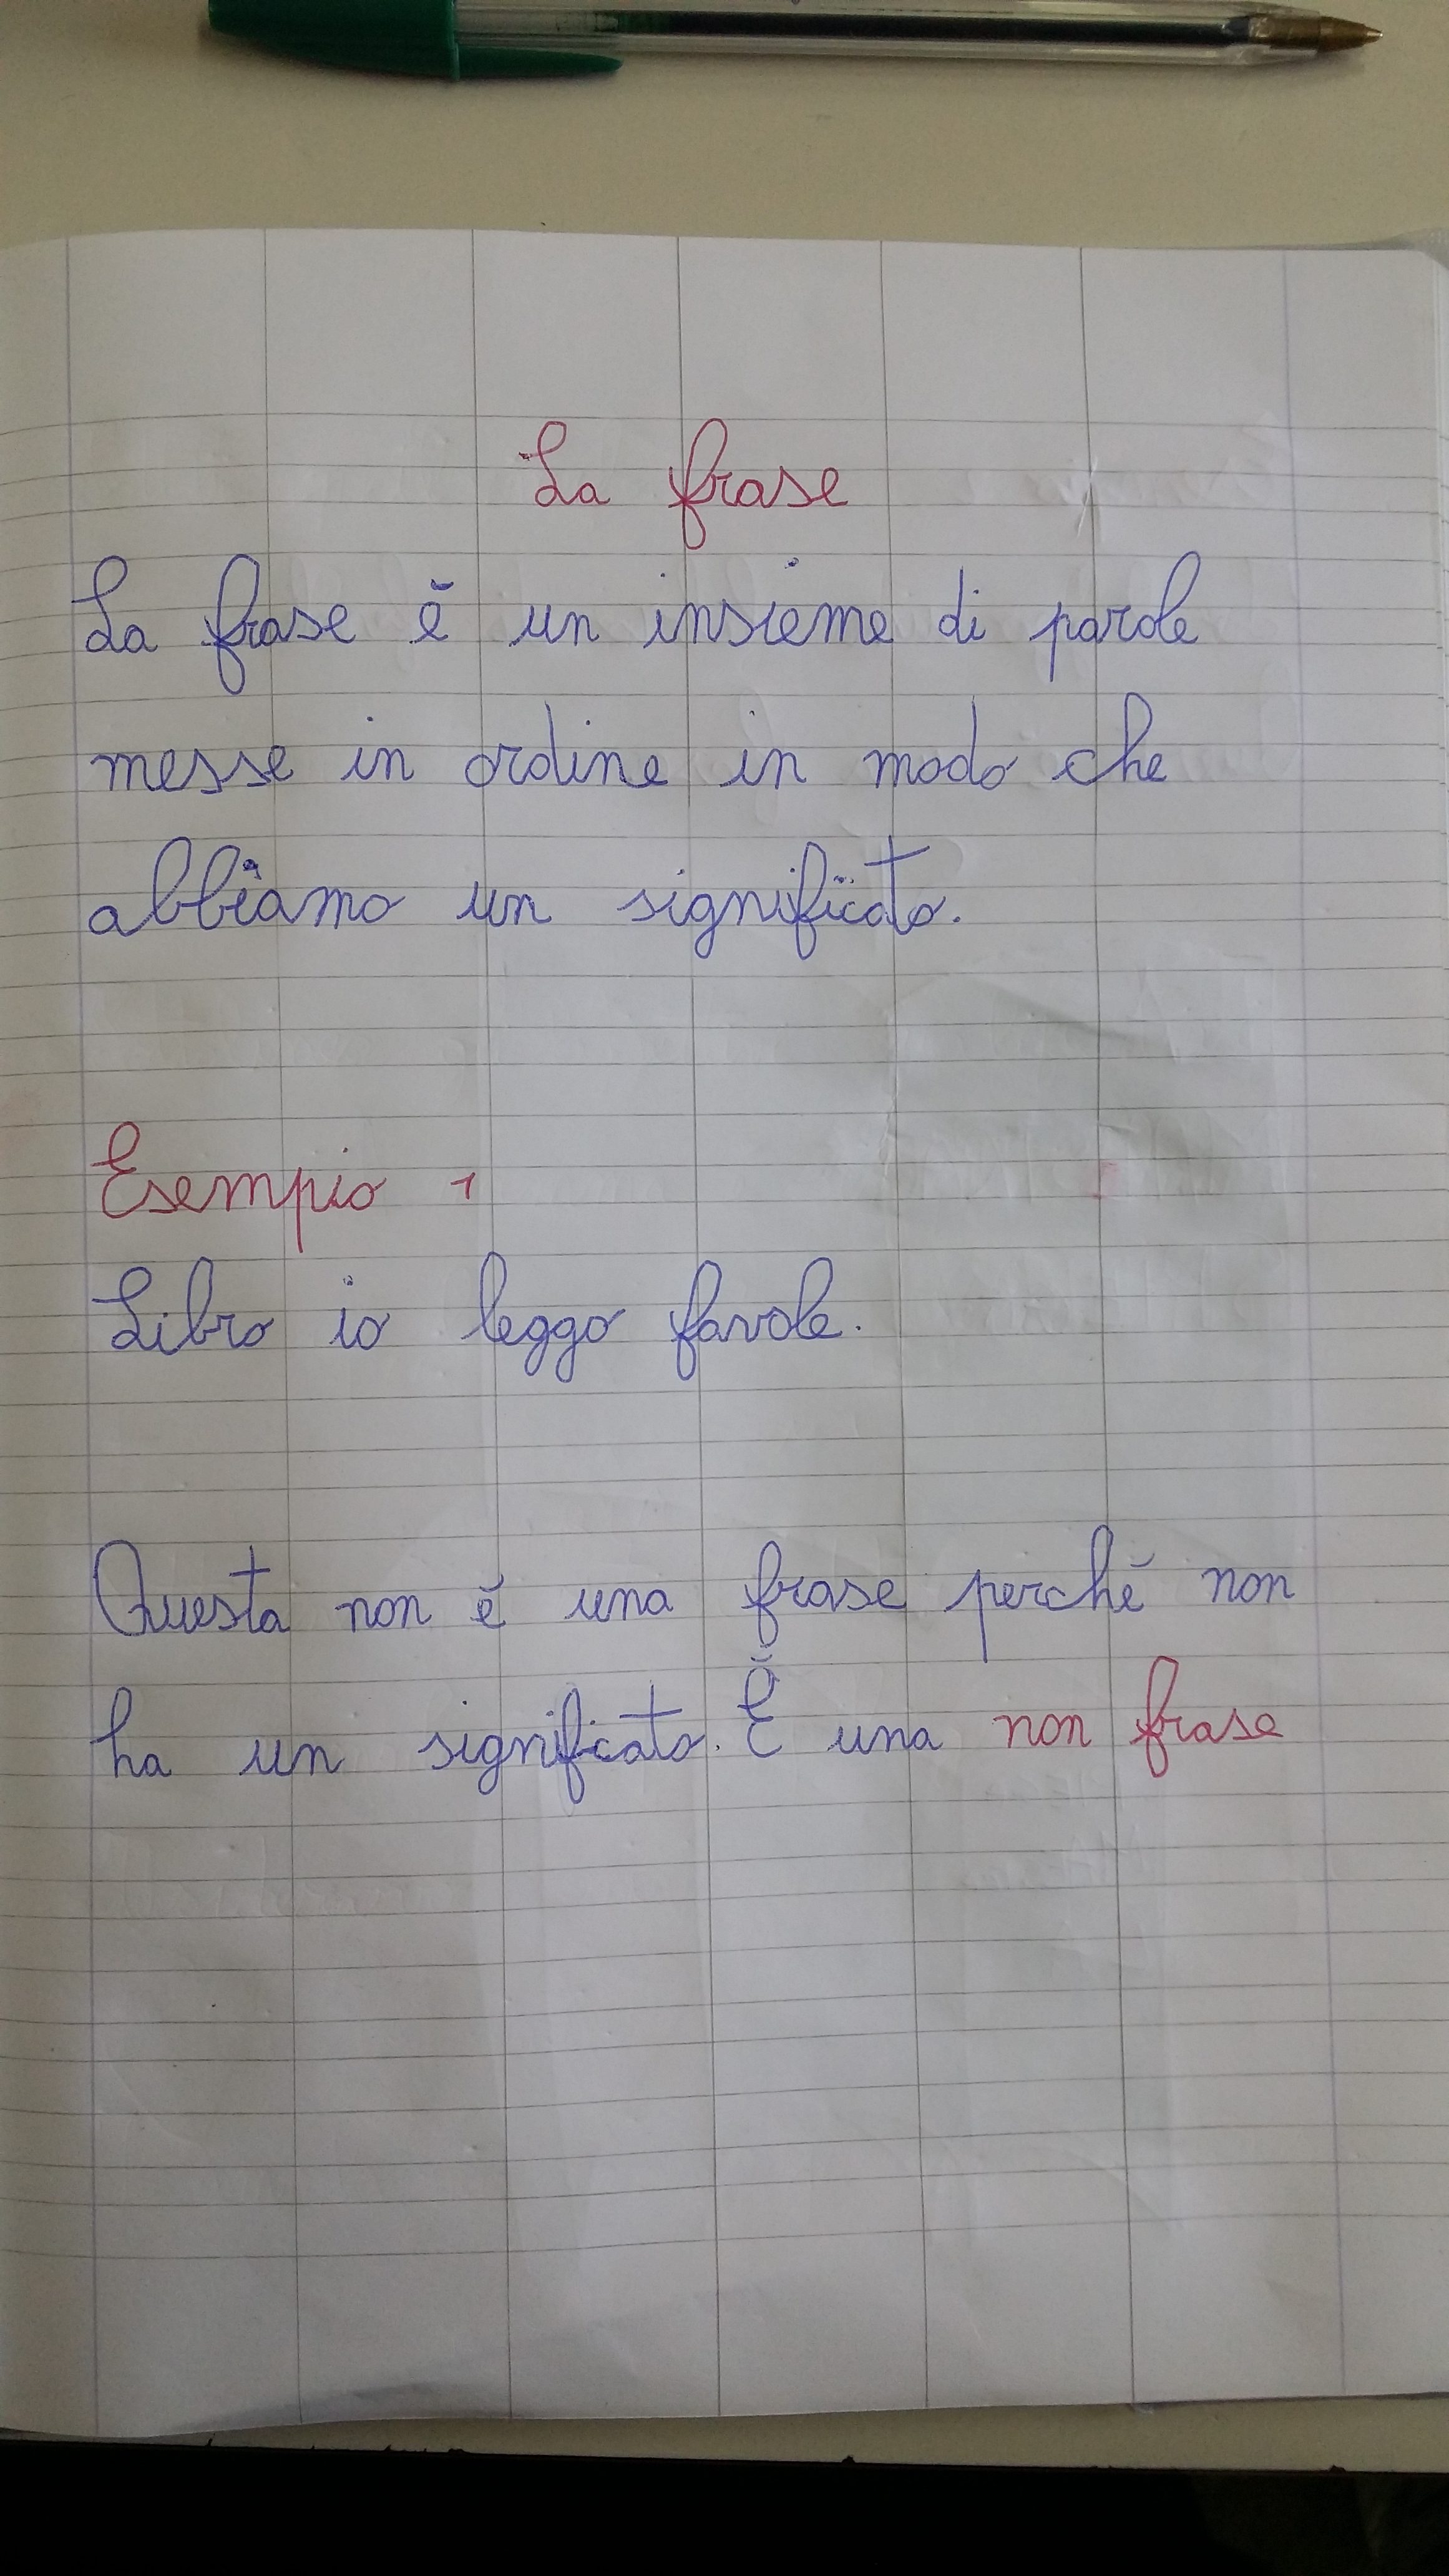 La frase
La frase è un insieme di parole
messe in ordine in modo che
abbiamo un significato.
Esempio 1
Libro io leggo favole.
Questa non è una frase perché non
ha un significato. È una non frase